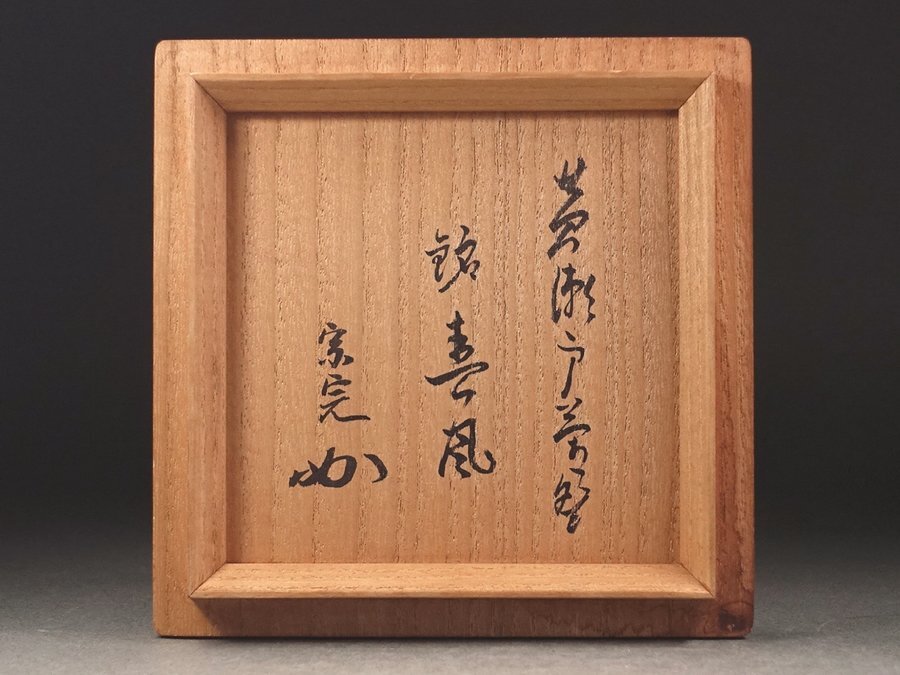 黄瀬戸茶碗
銘 春風
宗完